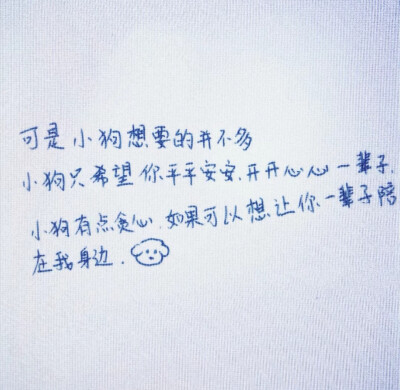 可是小狗想要的并不多
小狗只希望你平平安安、开开心心一辈子,
小狗有点贪心.如果可以想让你一辈子陪
在我身边.